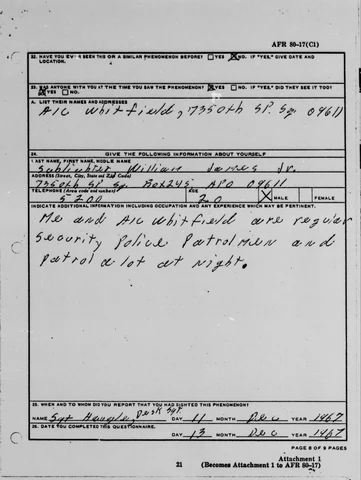 AFR 80-17(C1)
22. HAVE YOU EVER SEEN THIS OR A SIMILAR PHENOMENON BEFORE? YES X NO. IF "YES," GIVE DATE AND
LOCATION.
23. WAS ANYONE WITH YOU AT THE TIME YOU SAW THE PHENOMENON? X YES NO. IF "YES," DID THEY SEE IT TOO?
X YES NO.
A. LIST THEIR NAMES AND ADDRESSES
A1C Whitfield, 7350th SP. Sq 09611
24. GIVE THE FOLLOWING INFORMATION ABOUT YOURSELF
LAST NAME, FIRST NAME, MIDDLE NAME
William James Jr.
ADDRESS (Street, City, State and Zip Code)
7350th SP Sq. Box 245 APO 09611
TELEPHONE (Area code and number) AGE
5200 20 X MALE FEMALE
INDICATE ADDITIONAL INFORMATION INCLUDING OCCUPATION AND ANY EXPERIENCE WHICH MAY BE PERTINENT.
Me and A1C Whitfield are regular
Security Police Patrolmen and
Patrol a lot at Night.
25. WHEN AND TO WHOM DID YOU REPORT THAT YOU HAD SIGHTED THIS PHENOMENON?
NAME Sgt Desk Sgt. DAY 11 MONTH Dec YEAR 1967
26. DATE YOU COMPLETED THIS QUESTIONNAIRE. DAY 13 MONTH Dec YEAR 1967
PAGE 8 OF 8 PAGES
Attachment 1
21 (Becomes Attachment 1 to AFR 80-17)